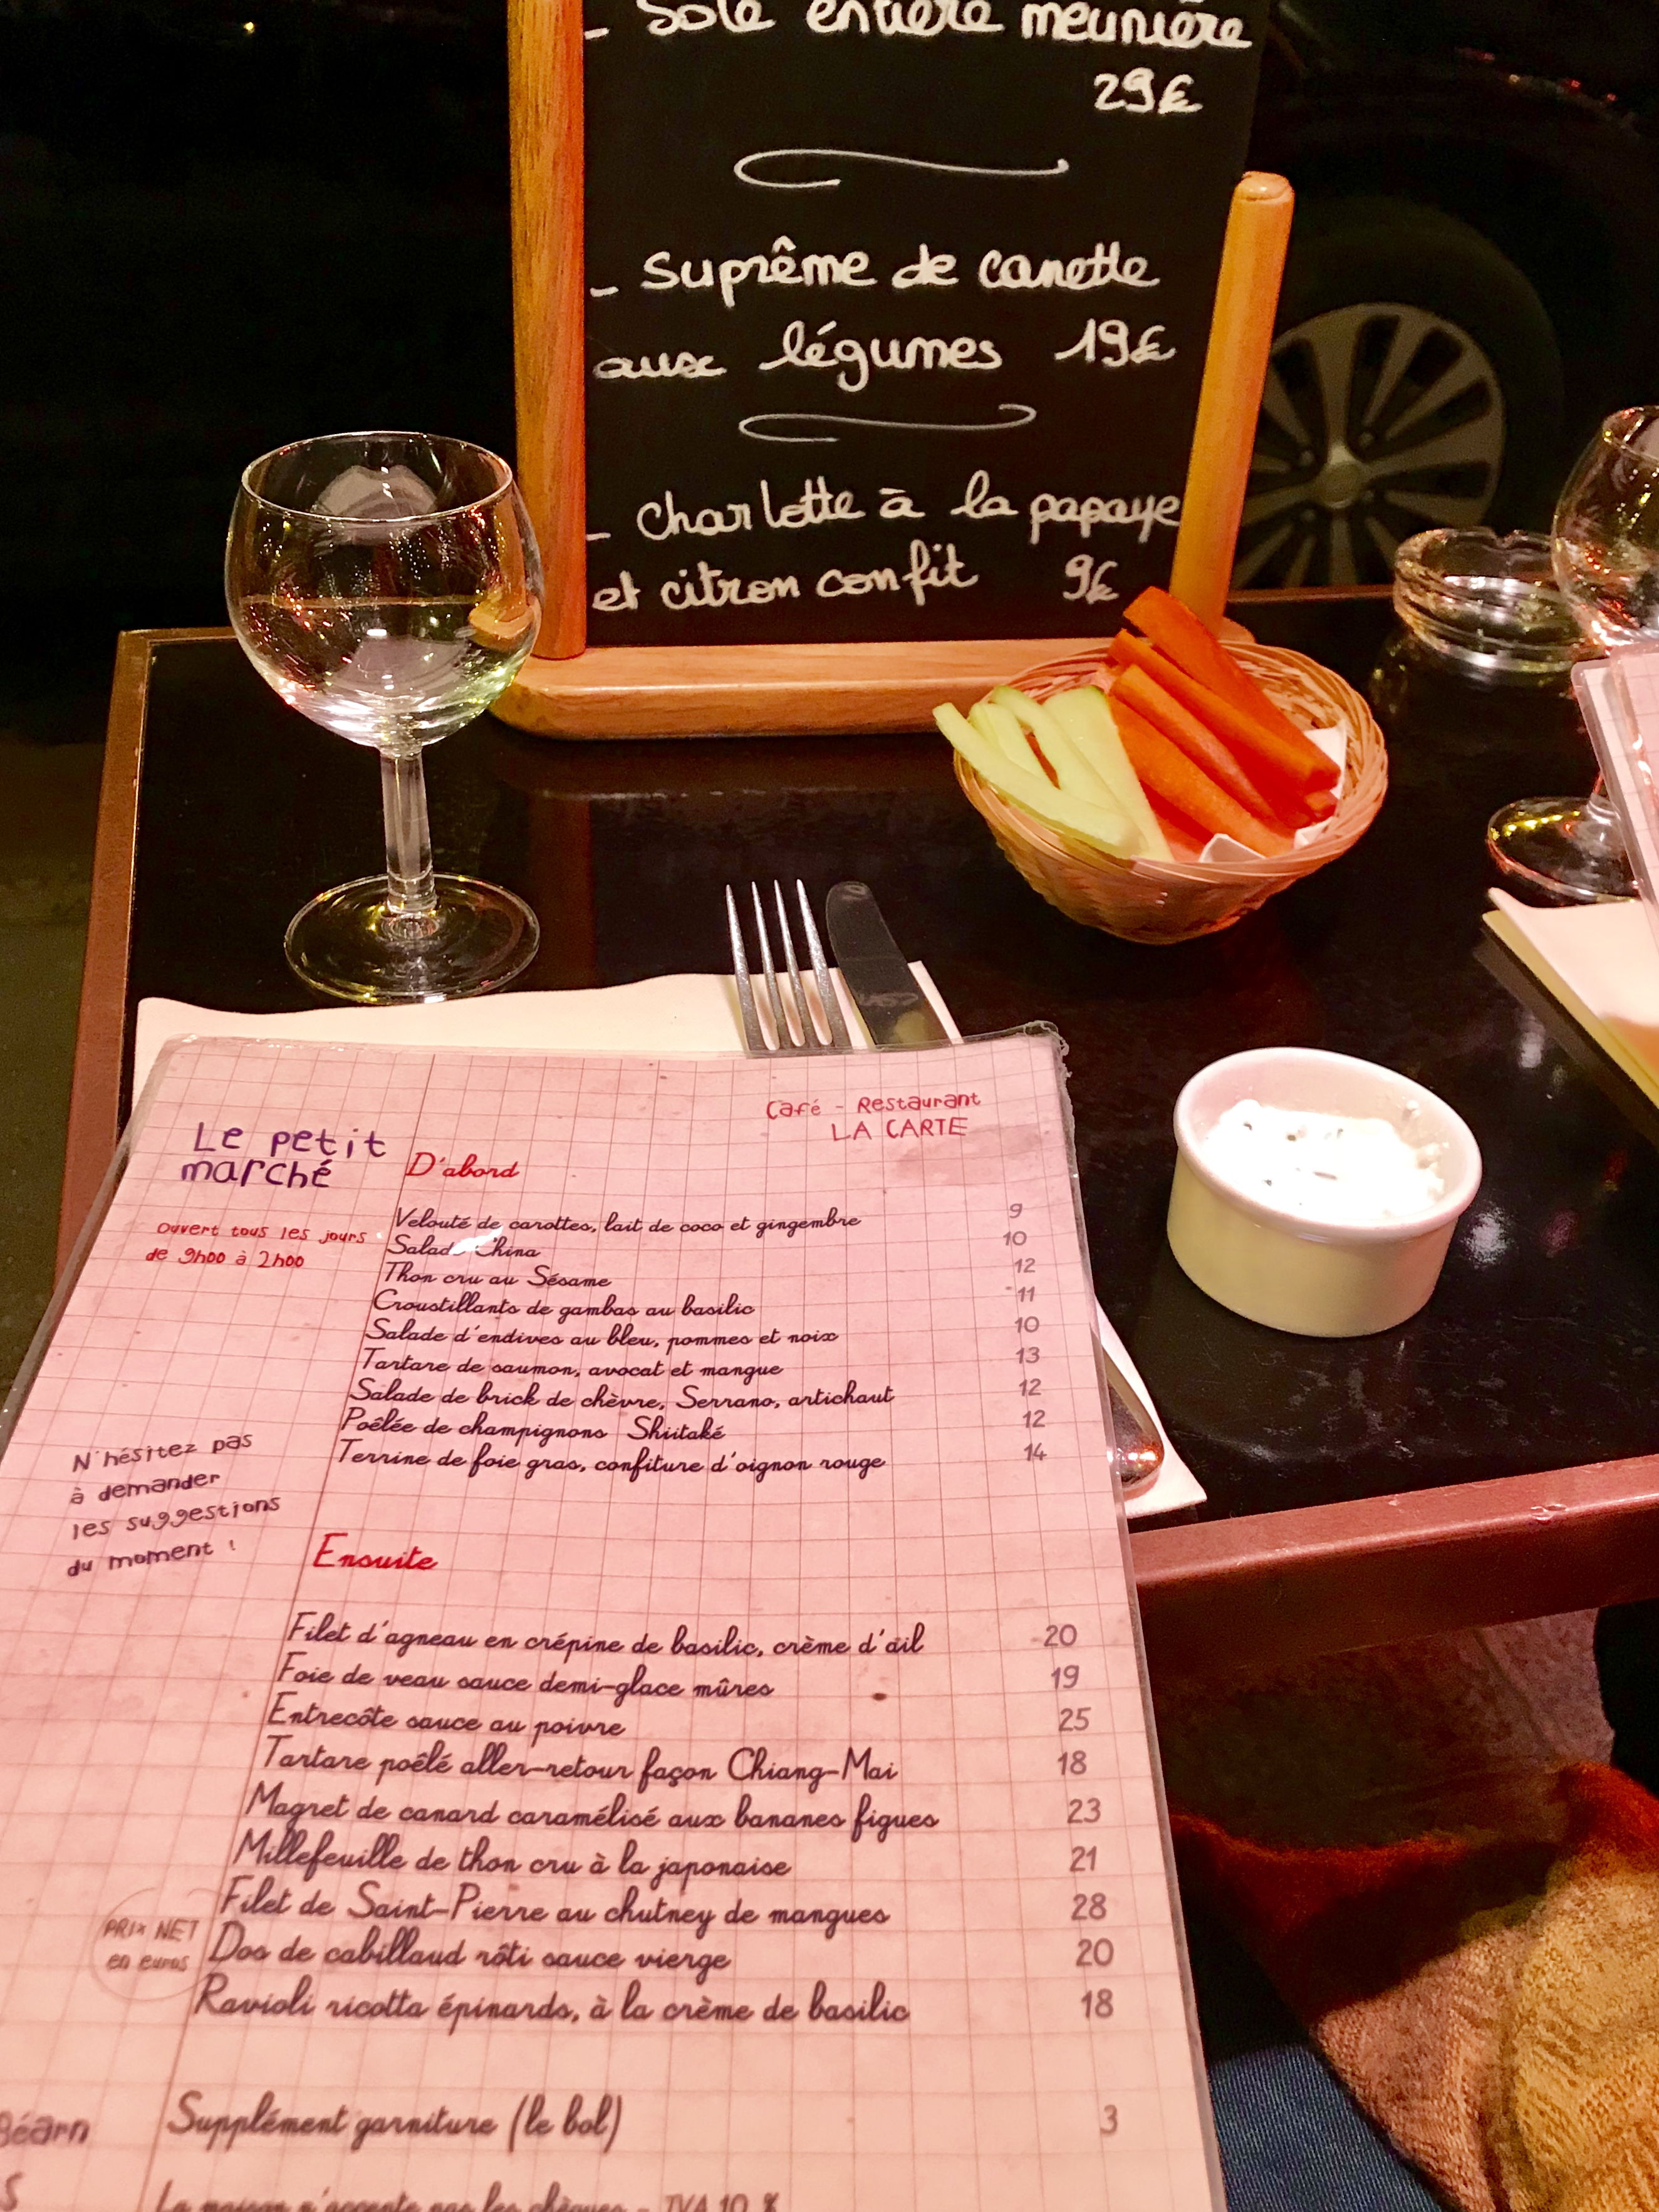 - Sole entière meunière
29€
- Suprême de canette
aux légumes 19€
- Charlotte à la papaye
et citron confit 9€
Café - Restaurant
LA CARTE
Le petit
marché
Ouvert tous les jours
de 9h00 à 2h00
D'abord
Velouté de carottes, lait de coco et gingembre 9
Salade China 10
Thon cru au Sésame 12
Croustillants de gambas au basilic 11
Salade d'endives au bleu, pommes et noix 10
Tartare de saumon, avocat et mangue 13
Salade de brick de chèvre, Serrano, artichaut 12
Poêlée de champignons Shiitaké 12
Terrine de foie gras, confiture d'oignon rouge 14
N'hésitez pas
à demander
les suggestions
du moment !
Ensuite
Filet d'agneau en crépine de basilic, crème d'ail 20
Foie de veau sauce demi-glace mûres 19
Entrecôte sauce au poivre 25
Tartare poêlé aller-retour façon Chiang-Mai 18
Magret de canard caramélisé aux bananes figues 23
Millefeuille de thon cru à la japonaise 21
Filet de Saint-Pierre au chutney de mangues 28
Dos de cabillaud rôti sauce vierge 20
Ravioli ricotta épinards, à la crème de basilic 18
PRIX NET
en euros
Supplément garniture (le bol) 3
Béarn
La maison n'accepte pas les chèques - TVA 10 %